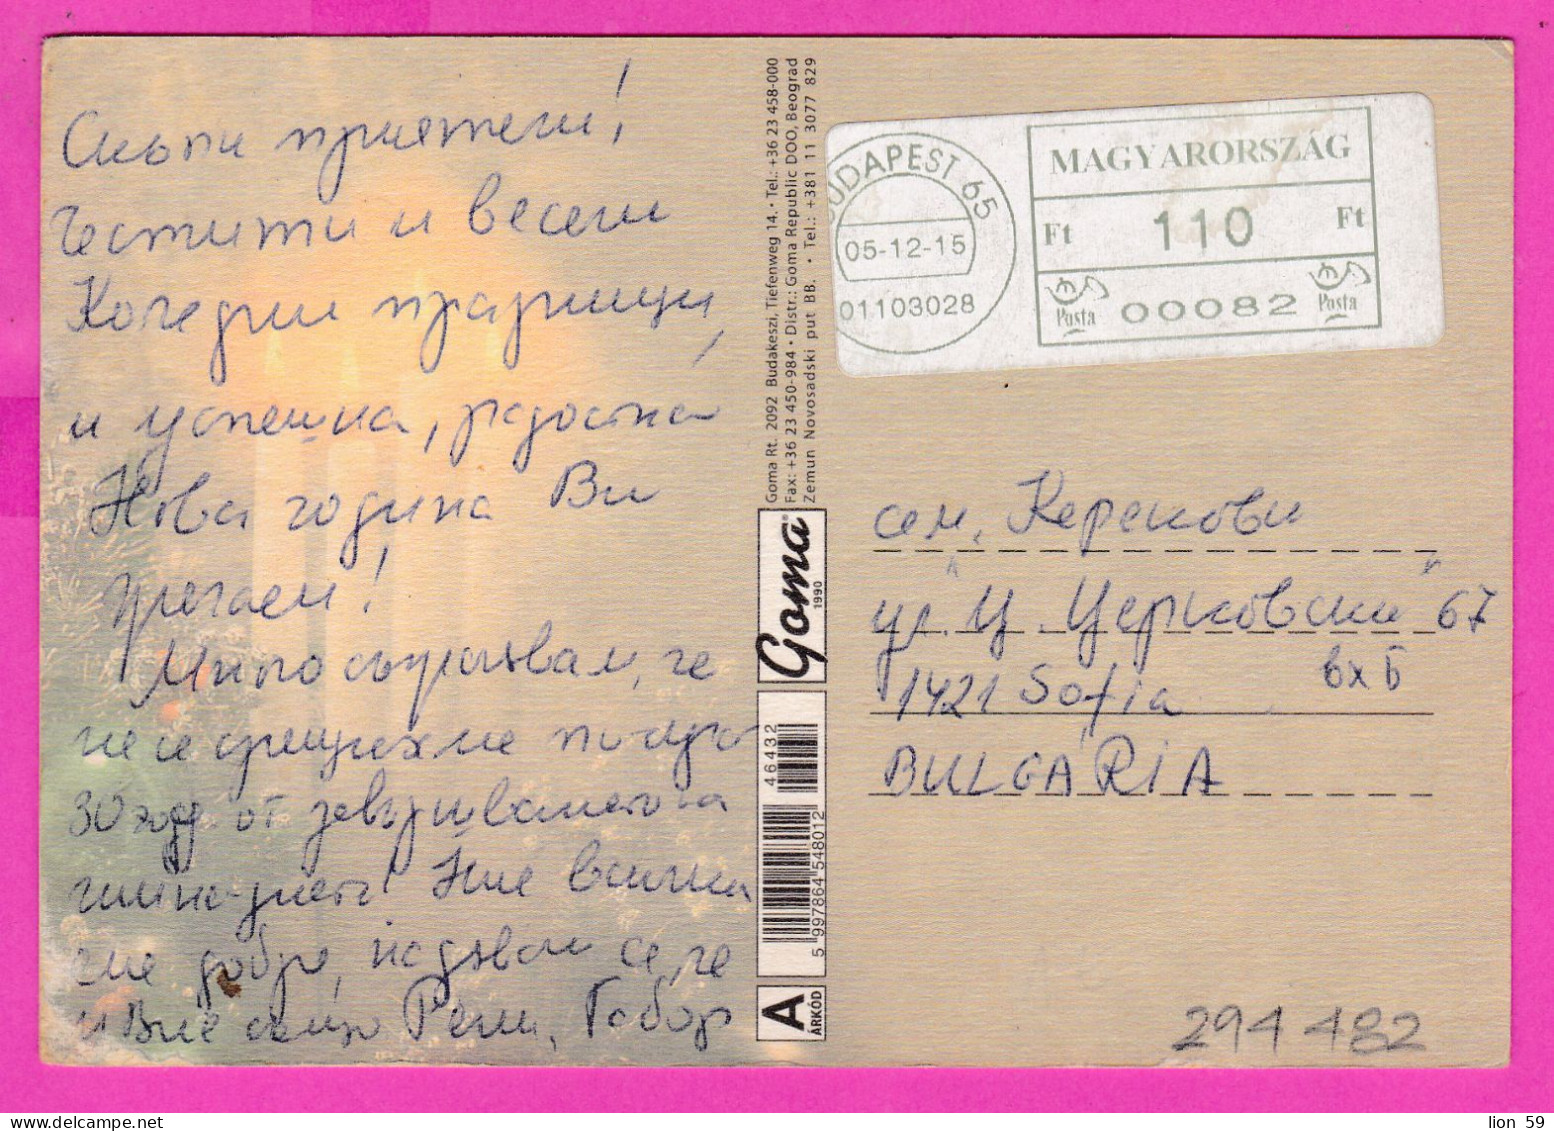 Скъпи приятели!
Честити и весели
Коледни празници,
и успешна, радостна
Нова година Ви
желаем!
Много съжалявам, че
не се срещнахме по случай
30 год от завършването на
гимназията! Ние всички
сме добре, надявам се, че
и Вие също Рени, Габор
Goma Rt. 2092 Budakeszi, Tiefenweg 14. • Tel.: +36 23 458-000
Fax: +36 23 450-984 • Distr.: Goma Republic DOO, Beograd
Zemun Novosadski put BB. • Tel.: +381 11 3077 829
Goma
1990
46432
5 997864 548012
A
ÁRKÓD
BUDAPEST 65
05-12-15
01103028
MAGYARORSZÁG
Ft 110 Ft
Posta 00082 Posta
сем. Керекови
ул. "Ц. Церковски" 67
1421 Sofia вх Б
BULGARIA
294 482
lion 59